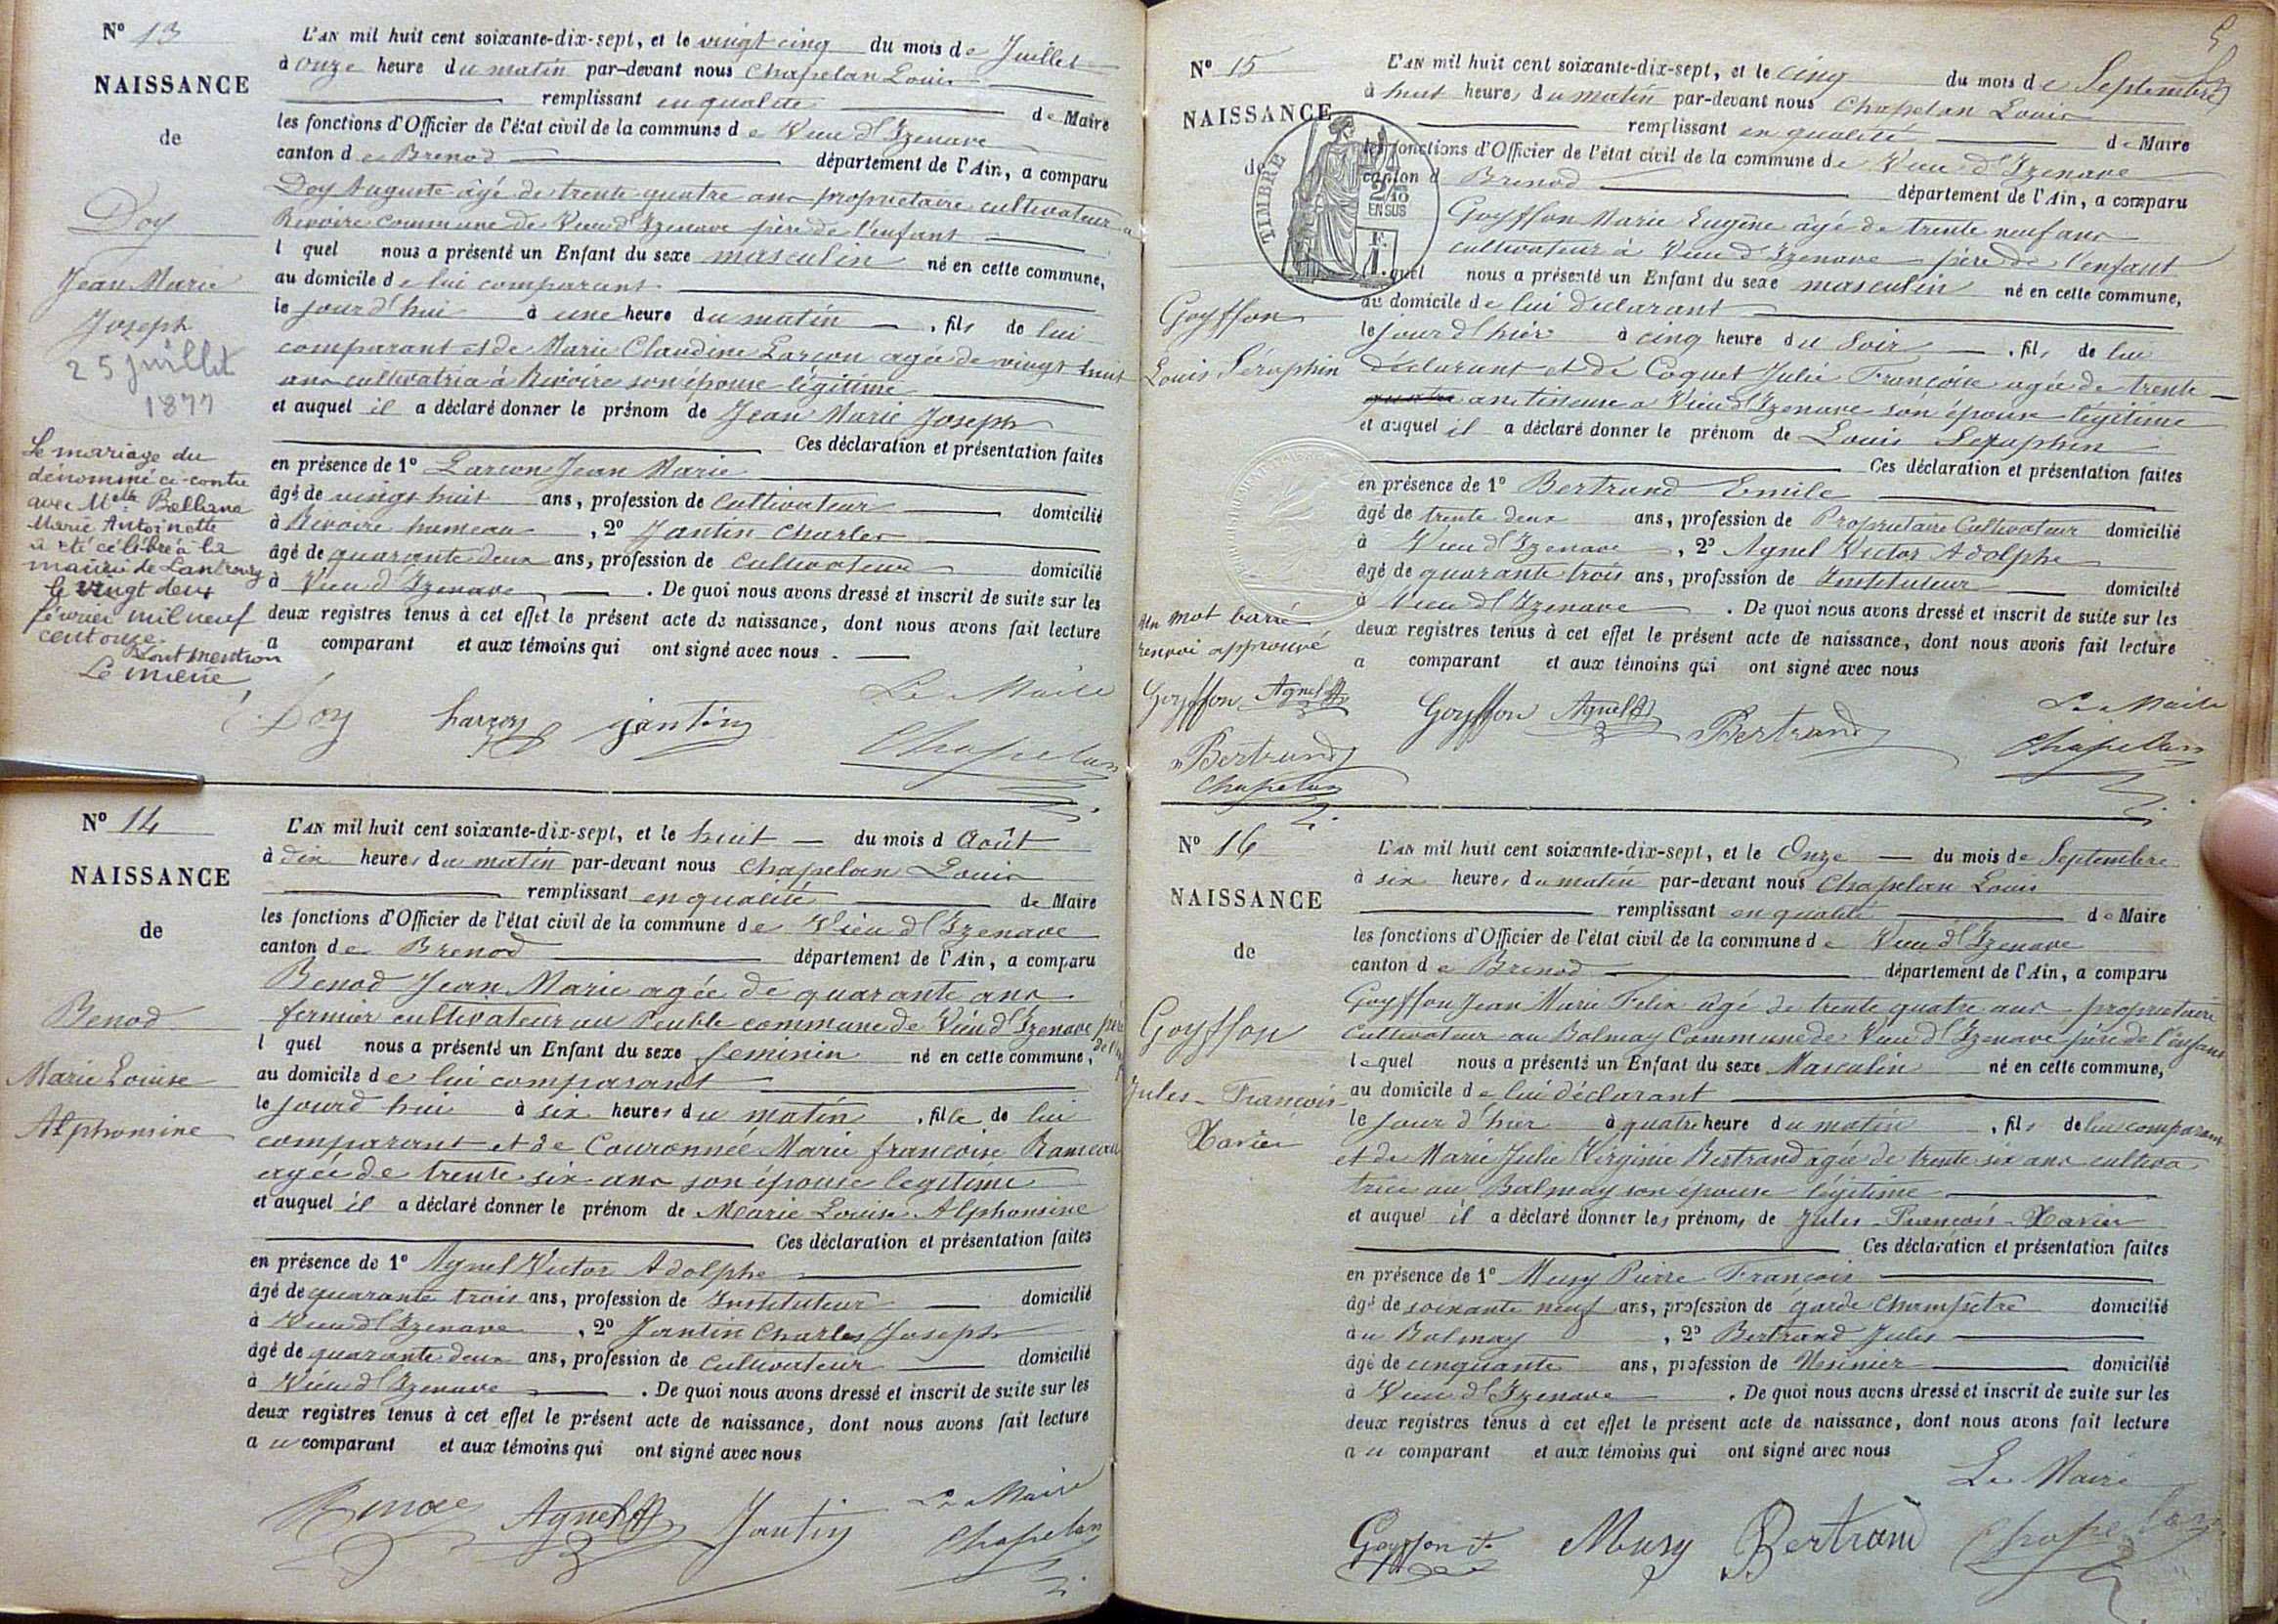 Nº 13
NAISSANCE
de
Doy
Jean Marie
Joseph
25 juillet
1877
Le mariage du
dénommé ci-contre
avec Melle
Marie Antoinette
a été célébré à la
mairie de
le vingt deux
février mil neuf
cent onze.
Dont mention
Le maire
L'AN mil huit cent soixante-dix-sept, et le vingt cinq du mois de Juillet
à onze heure du matin par-devant nous Chapelan Louis
remplissant en qualité de Maire
les fonctions d'Officier de l'état civil de la commune de Vieu d'Izenave
canton de Brenod département de l'Ain, a comparu
Doy Auguste âgé de trente quatre ans propriétaire cultivateur à
Revoire commune de Vieu d'Izenave père de l'enfant
l quel nous a présenté un Enfant du sexe masculin né en cette commune,
au domicile de lui comparant
le jour d'hui à une heure du matin , fils de lui
comparant et de Marie Claudine Larcon agée de vingt huit
ans cultivatrice à Revoire son épouse légitime
et auquel il a déclaré donner le prénom de Jean Marie Joseph
Ces déclaration et présentation faites
en présence de 1º Larcon Jean Marie
âgé de vingt huit ans, profession de Cultivateur domicilié
à Revoire hameau , 2º Jantin Charles
âgé de quarante deux ans, profession de Cultivateur domicilié
à Vieu d'Izenave . De quoi nous avons dressé et inscrit de suite sur les
deux registres tenus à cet effet le présent acte de naissance, dont nous avons fait lecture
a comparant et aux témoins qui ont signé avec nous .
Le Maire
Doy Larcon jantin
Chapelan
Nº 14
NAISSANCE
de
Benod
Marie Louise
Alphonsine
L'AN mil huit cent soixante-dix-sept, et le huit du mois d Août
à dix heures du matin par-devant nous Chapelan Louis
remplissant en qualité de Maire
les fonctions d'Officier de l'état civil de la commune de Vieu d'Izenave
canton de Brenod département de l'Ain, a comparu
Benod Jean Marie agée de quarante ans
fermier cultivateur au Peuble commune de Vieu d'Izenave père
de l'enf
l quel nous a présenté un Enfant du sexe feminin né en cette commune,
au domicile de lui comparant
le jourd hui à six heures du matin , fille de lui
comparant et de Couronnée Marie francoise Rameau
agée de trente six ans son épouse legitime
et auquel il a déclaré donner le prénom de Marie Louise Alphonsine
Ces déclaration et présentation faites
en présence de 1º Agnel Victor Adolphe
âgé de quarante trois ans, profession de Instituteur domicilié
à Vieu d'Izenave , 2º Jantin Charles Joseph
âgé de quarante deux ans, profession de Cultivateur domicilié
à Vieu d'Izenave . De quoi nous avons dressé et inscrit de suite sur les
deux registres tenus à cet effet le présent acte de naissance, dont nous avons fait lecture
a u comparant et aux témoins qui ont signé avec nous
Benod Agnel A Jantin Le Maire
Chapelan
5
Nº 15
NAISSANCE
de
TIMBRE
2/10
EN SUS
Goyffon
Louis Séraphin
Un mot barré
renvoi approuvé
Goyffon Agnel A
Bertrand
Chapelan
L'AN mil huit cent soixante-dix-sept, et le cinq du mois de Septembre
à huit heures du matin par-devant nous Chapelan Louis
remplissant en qualité de Maire
les fonctions d'Officier de l'état civil de la commune de Vieu d'Izenave
canton d Brenod département de l'Ain, a comparu
Goyffon Marie Eugène âgé de trente neuf ans
cultivateur à Vieu d'Izenave père de l'enfant
l quel nous a présenté un Enfant du sexe masculin né en cette commune,
au domicile de lui declarant
le jour d'hier à cinq heure du Soir , fils de lui
déclarant et de Coquet Julie Françoise agée de trente
quatre ans à Vieu d'Izenave son épouse légitime
et auquel il a déclaré donner le prénom de Louis Seraphin
Ces déclaration et présentation faites
en présence de 1º Bertrand Emile
âgé de trente deux ans, profession de Propriétaire Cultivateur domicilié
à Vieu d'Izenave , 2º Agnel Victor Adolphe
âgé de quarante trois ans, profession de Instituteur domicilié
à Vieu d'Izenave . De quoi nous avons dressé et inscrit de suite sur les
deux registres tenus à cet effet le présent acte de naissance, dont nous avons fait lecture
a comparant et aux témoins qui ont signé avec nous
Goyffon Agnel A Bertrand Le Maire
Chapelan
Nº 16
NAISSANCE
de
Goyffon
Jules-François
Xavier
L'AN mil huit cent soixante-dix-sept, et le Onze du mois de Septembre
à six heures du matin par-devant nous Chapelan Louis
remplissant en qualité de Maire
les fonctions d'Officier de l'état civil de la commune de Vieu d'Izenave
canton de Brenod département de l'Ain, a comparu
Goyffon Jean Marie Felix agé de trente quatre ans propriétaire
Cultivateur au Balmay Commune de Vieu d'Izenave père de l'enfant
lequel nous a présenté un Enfant du sexe Masculin né en cette commune,
au domicile de lui déclarant
le jour d'hier à quatre heure du matin , fils de lui comparant
et de Marie Julie Virginie Bertrand agée de trente six ans cultiva
trice au Balmay son épouse légitime
et auquel il a déclaré donner les prénoms de Jules-François-Xavier
Ces déclaration et présentation faites
en présence de 1º Musy Pierre François
âgé de soixante neuf ans, profession de garde Champêtre domicilié
au Balmay , 2º Bertrand Jules
âgé de cinquante ans, profession de domicilié
à Vieu d'Izenave . De quoi nous avons dressé et inscrit de suite sur les
deux registres tenus à cet effet le présent acte de naissance, dont nous avons fait lecture
a u comparant et aux témoins qui ont signé avec nous
Le Maire
Goyffon f. Musy Bertrand Chapelan